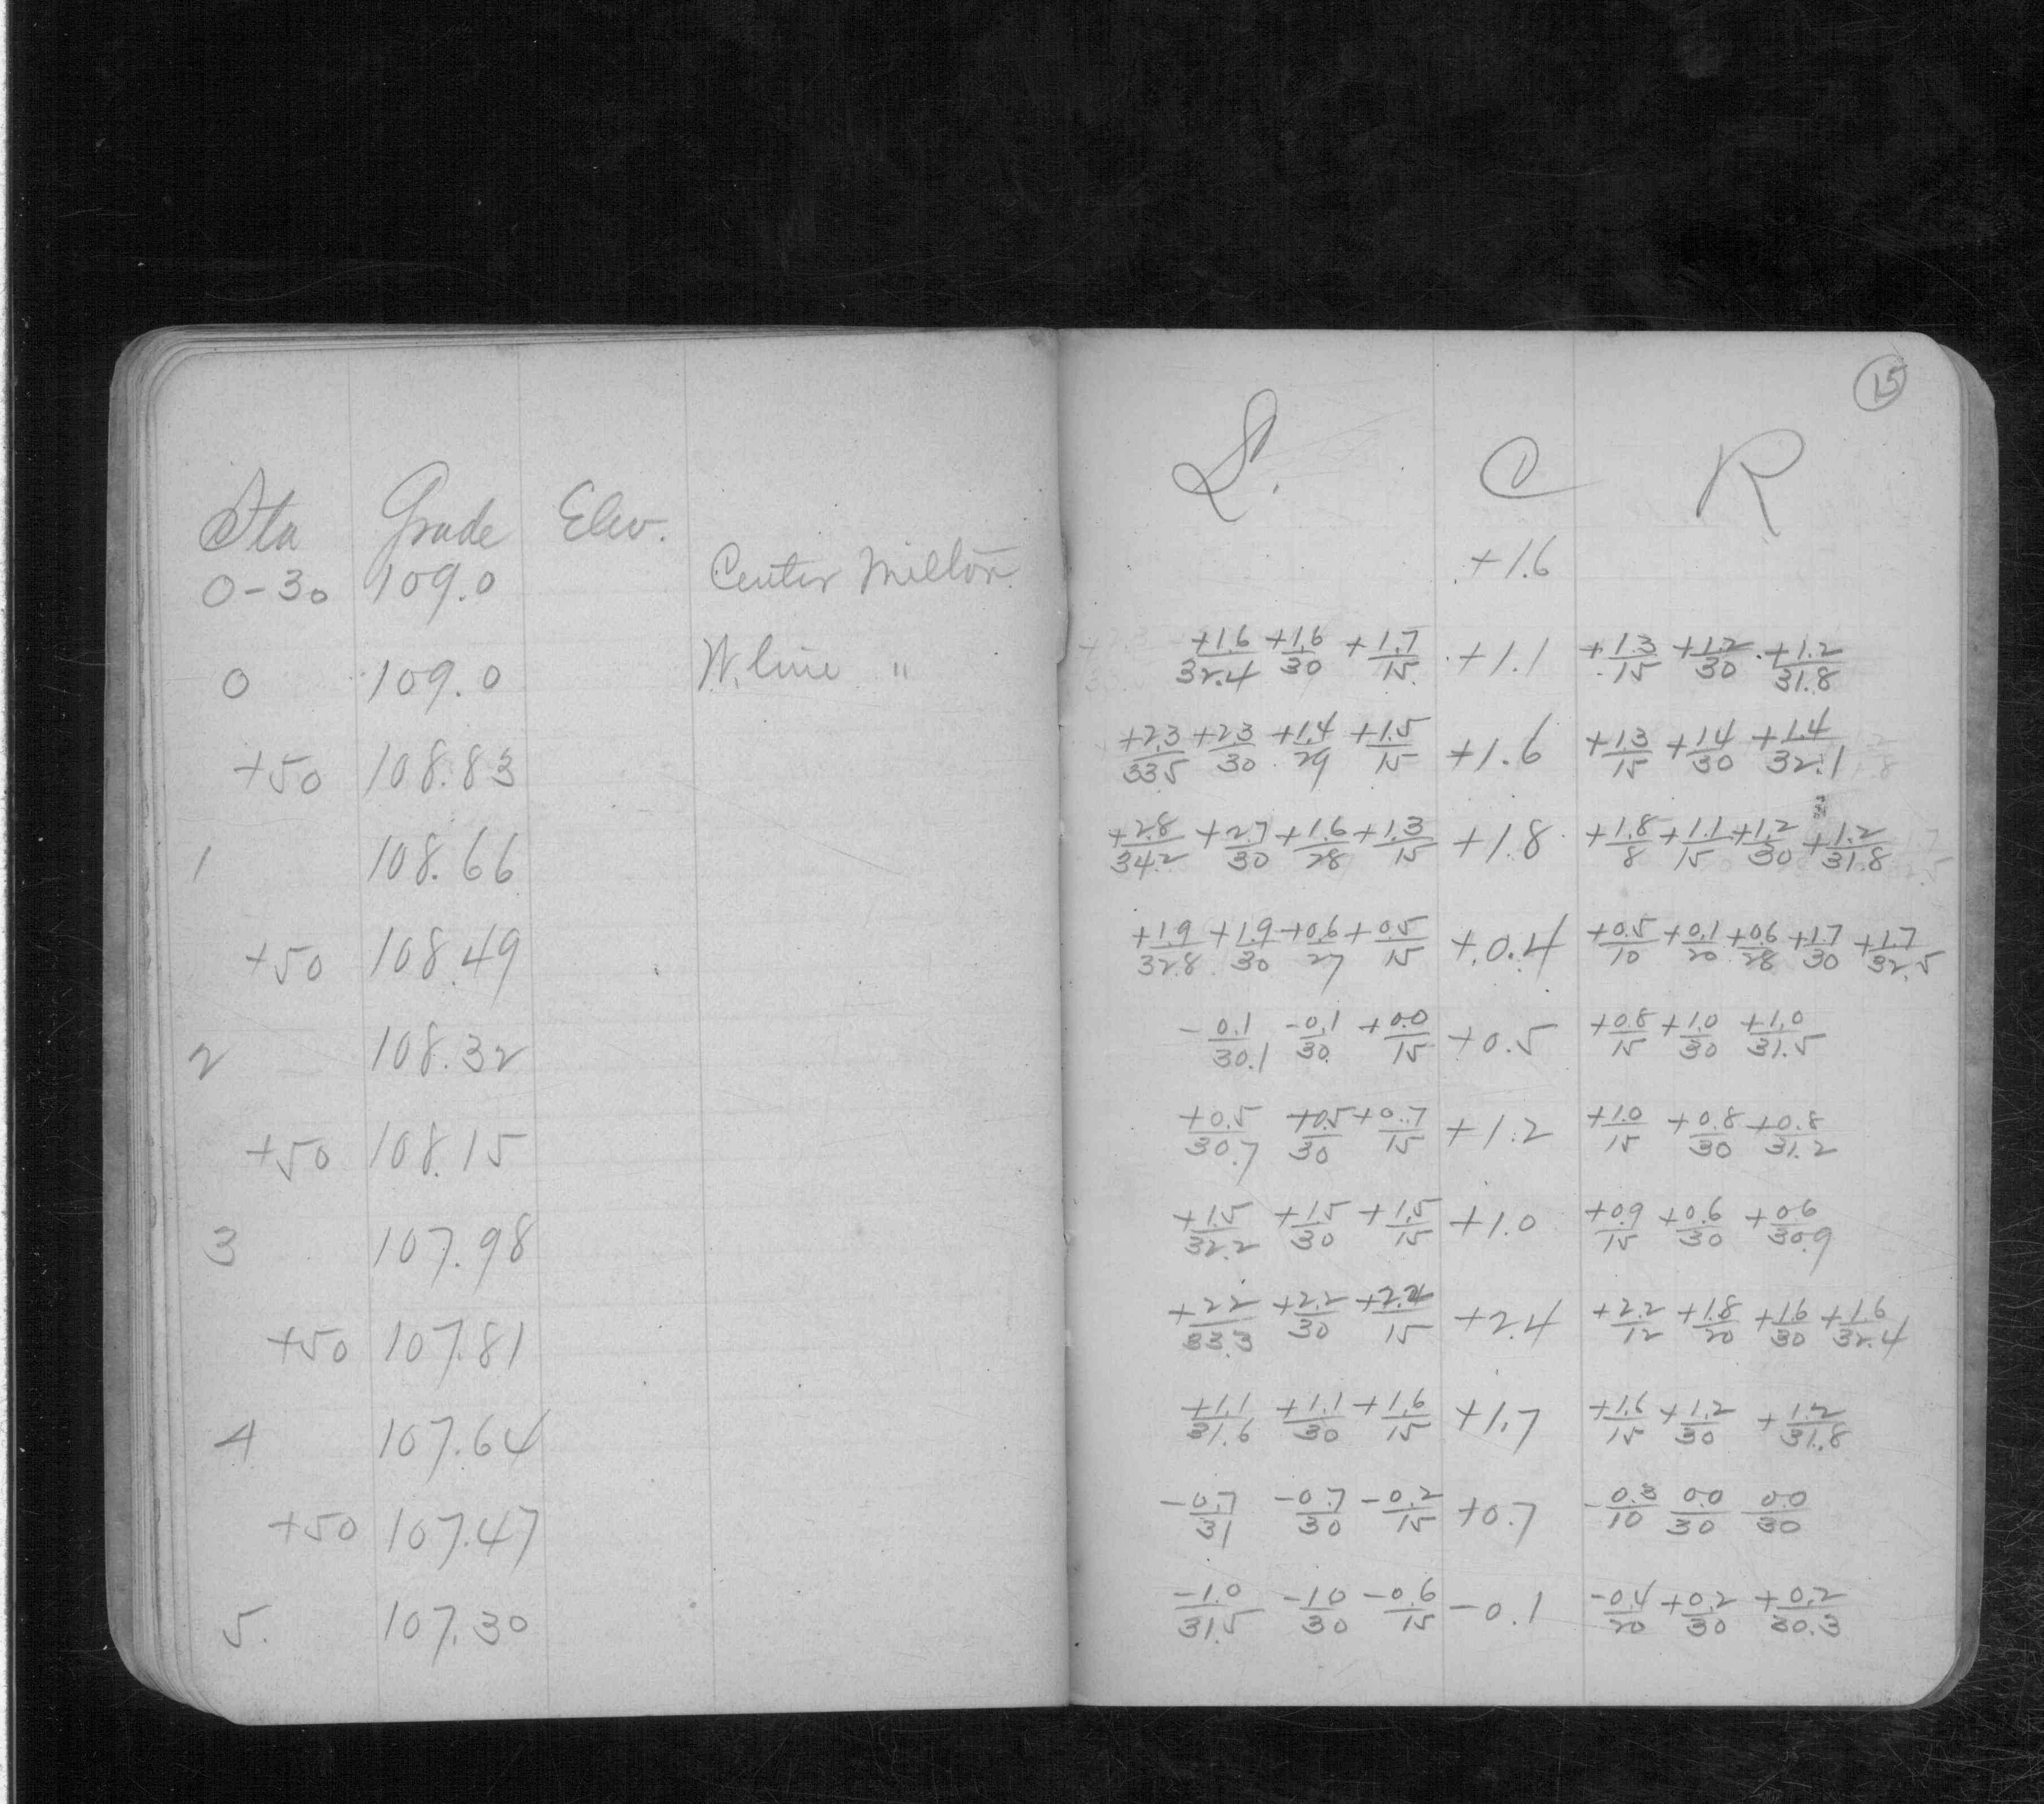 15
Sta Grade Elev.
0-30 109.0 Center Milton
0 109.0 W. line "
+50 108.83
1 108.66
+50 108.49
2 108.32
+50 108.15
3 107.98
+50 107.81
4 107.64
+50 107.47
5. 107.30
L. C R
+1.6
+1.6/32.4 +1.6/30 +1.7/15 +1.1 +1.3/15 +1.2/30 +1.2/31.8
+2.3/33.5 +2.3/30 +1.4/29 +1.5/15 +1.6 +1.3/15 +1.4/30 +1.4/32.1
+2.8/34.2 +2.7/30 +1.6/28 +1.3/15 +1.8 +1.8/8 +1.1/15 +1.2/30 +1.2/31.8
+1.9/32.8 +1.9/30 +0.6/27 +0.5/15 +0.4 +0.5/10 +0.1/20 +0.6/28 +1.7/30 +1.7/32.5
-0.1/30.1 -0.1/30 +0.0/15 +0.5 +0.8/15 +1.0/30 +1.0/31.5
+0.5/30.7 +0.5/30 +0.7/15 +1.2 +1.0/15 +0.8/30 +0.8/31.2
+1.5/32.2 +1.5/30 +1.5/15 +1.0 +0.9/15 +0.6/30 +0.6/30.9
+2.2/33.3 +2.2/30 +2.4/15 +2.4 +2.2/12 +1.8/20 +1.6/30 +1.6/32.4
+1.1/31.6 +1.1/30 +1.6/15 +1.7 +1.6/15 +1.2/30 +1.2/31.8
-0.7/31 -0.7/30 -0.2/15 +0.7 -0.3/10 0.0/30 0.0/30
-1.0/31.5 -1.0/30 -0.6/15 -0.1 -0.4/20 +0.2/30 +0.2/30.3